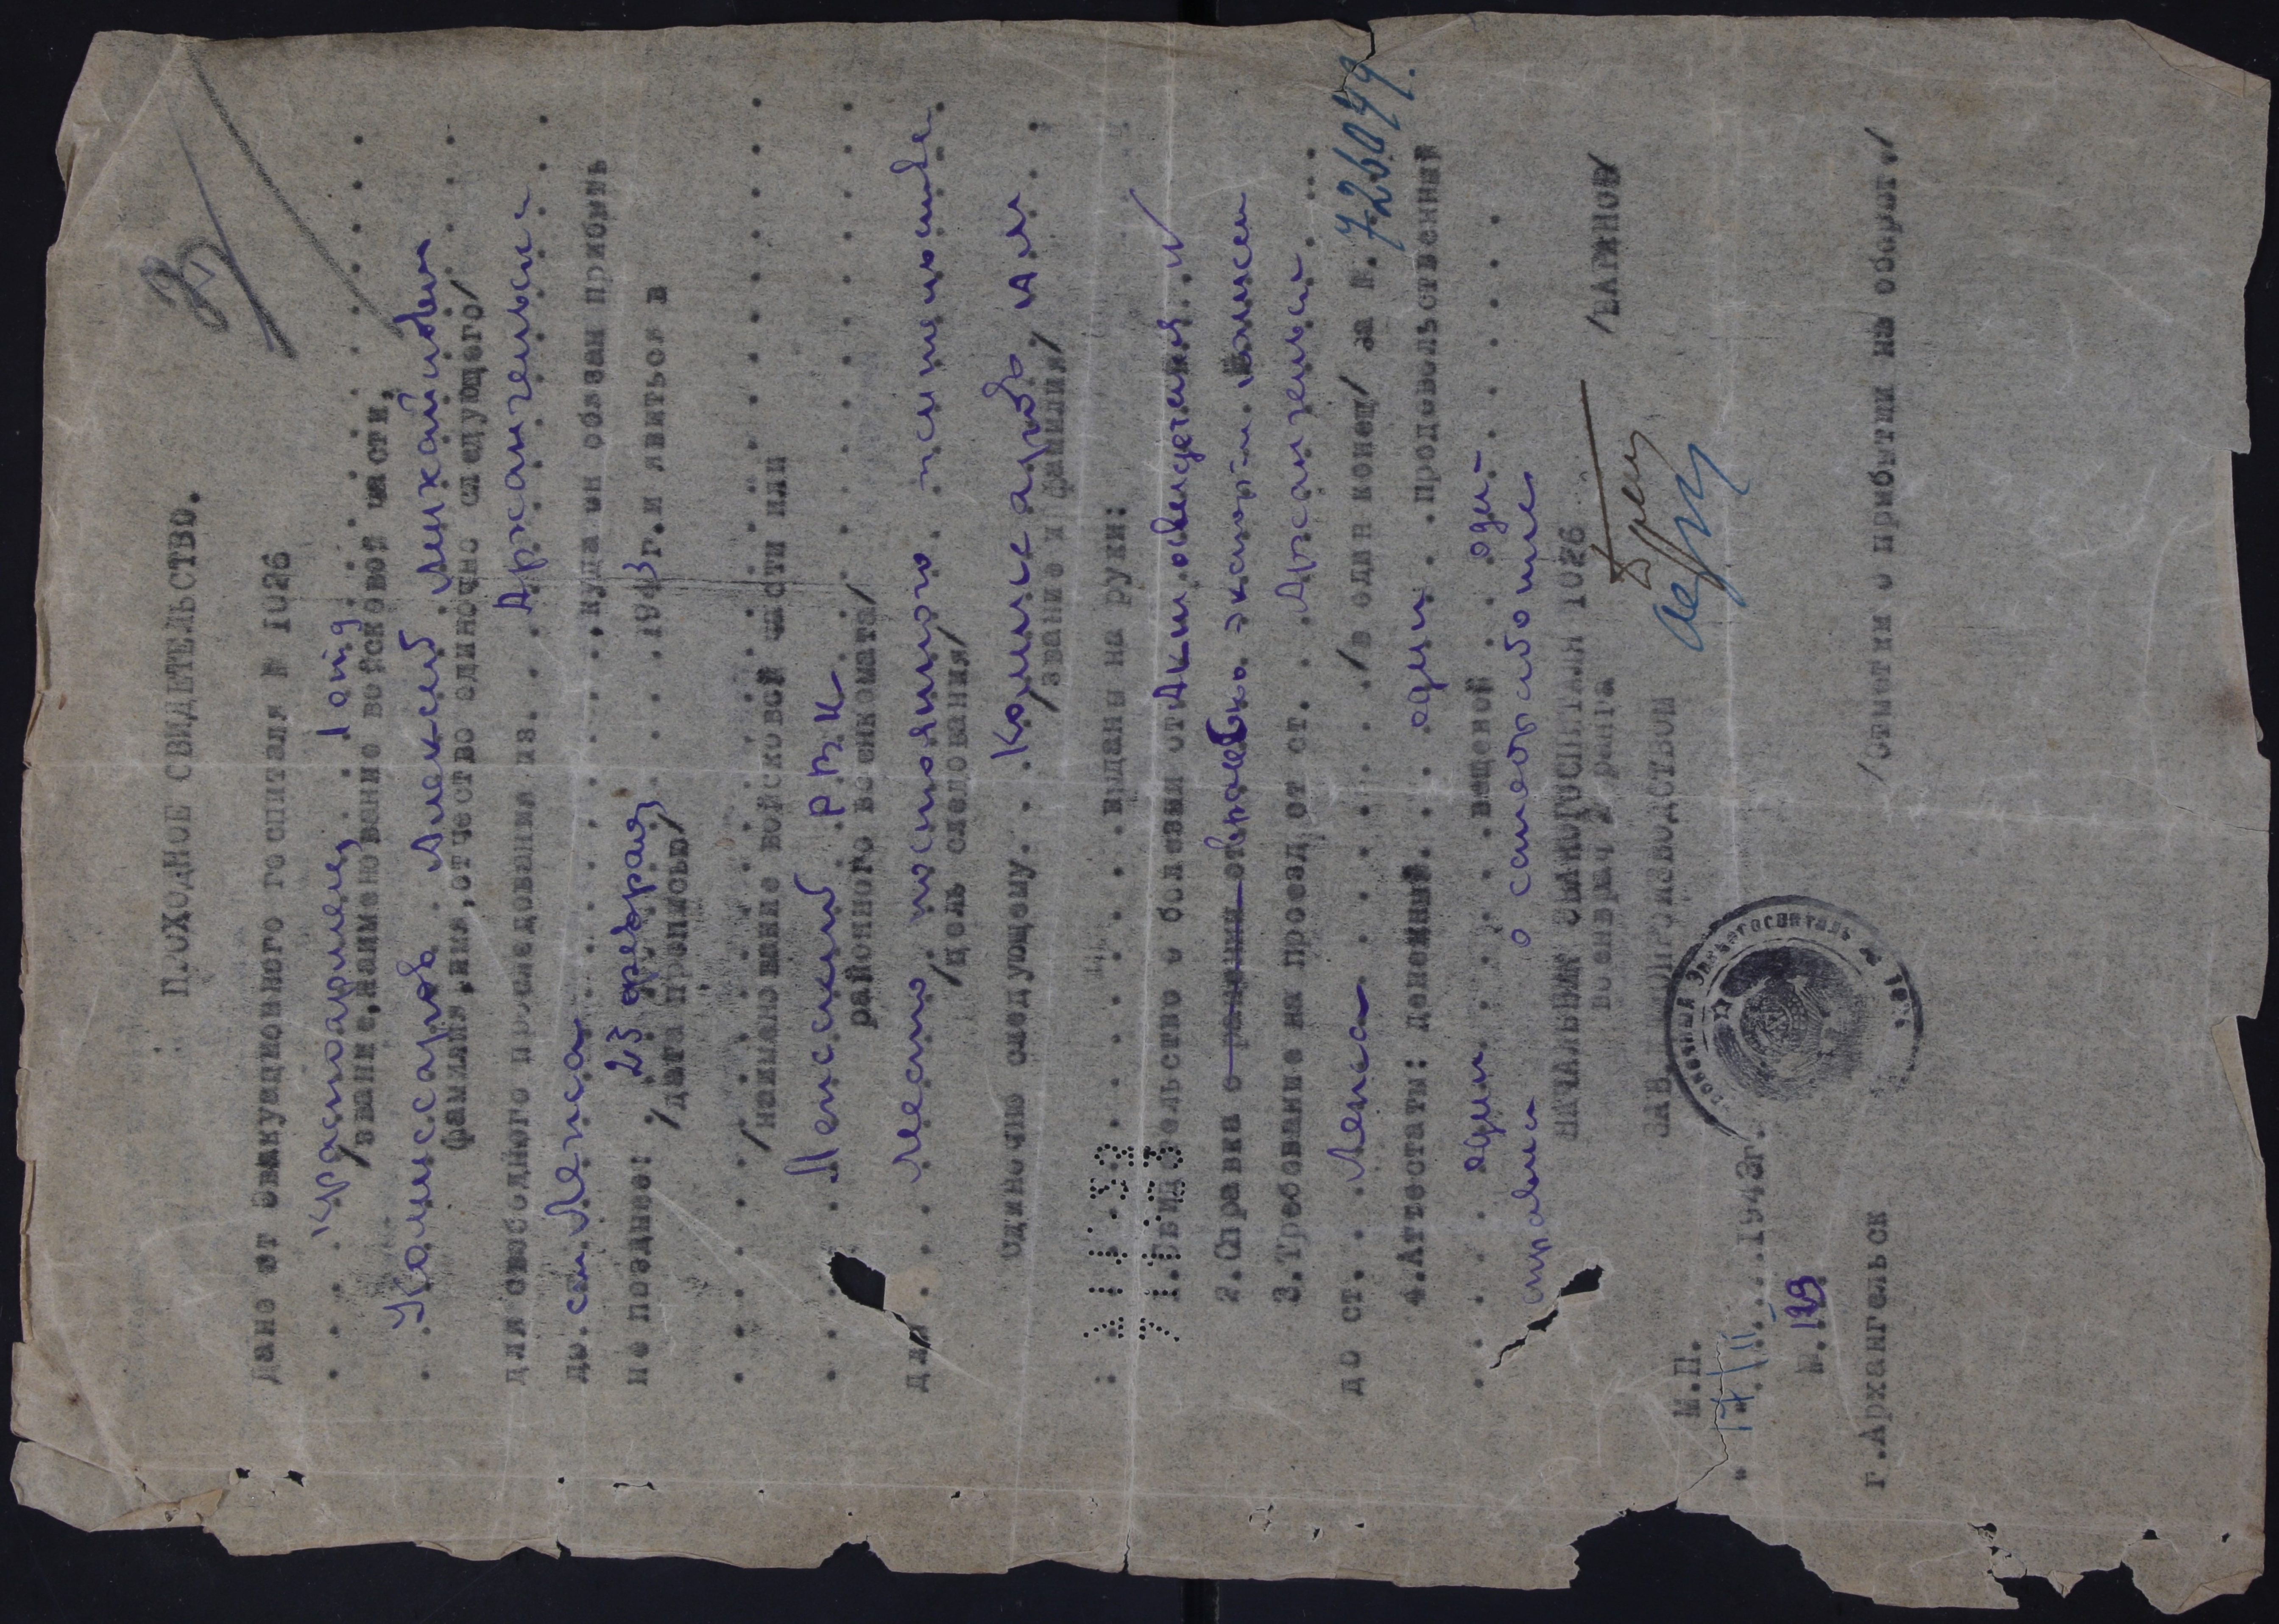 З
ПРОХОДНОЕ СВИДЕТЕЛЬСТВО.
Дано от Эвакуационного госпиталя № 1026
красноармеец
/звание, наименование войсковой части,
Комиссаров Алексей Михайлович
фамилия, имя, отчество одиночно следующего/
для свободного проследования из. Архангельска
до ст. Лепса куда он обязан прибыть
не позднее: 23 февраля 1943 г. и явиться в
/дата прописью/
/наименование войсковой части или
Лепсский РВК
районного военкомата/
для место постоянного жительства
/цель следования/
Одиночно следующему. Комиссарову АМ
/звание и фамилия/
Выданы на руки:
1. Свидетельство о болезни от
2. Справка о ранении
3. Требование на проезд от ст. Архангельск
до ст. Лепса /в один конец/ за №. 726049.
4. Аттестаты: денежный. один продовольственный
один вещевой один
справки о
НАЧАЛЬНИК ЭВАКОГОСПИТАЛЯ 1026
военврач 2 ранга /БАЖНОВ/
ЗАВ. ДЕЛОПРОИЗВОДСТВОМ
М.П.
17/II 1943г.
№.
г. Архангельск
/Отметки о прибытии на оборот./